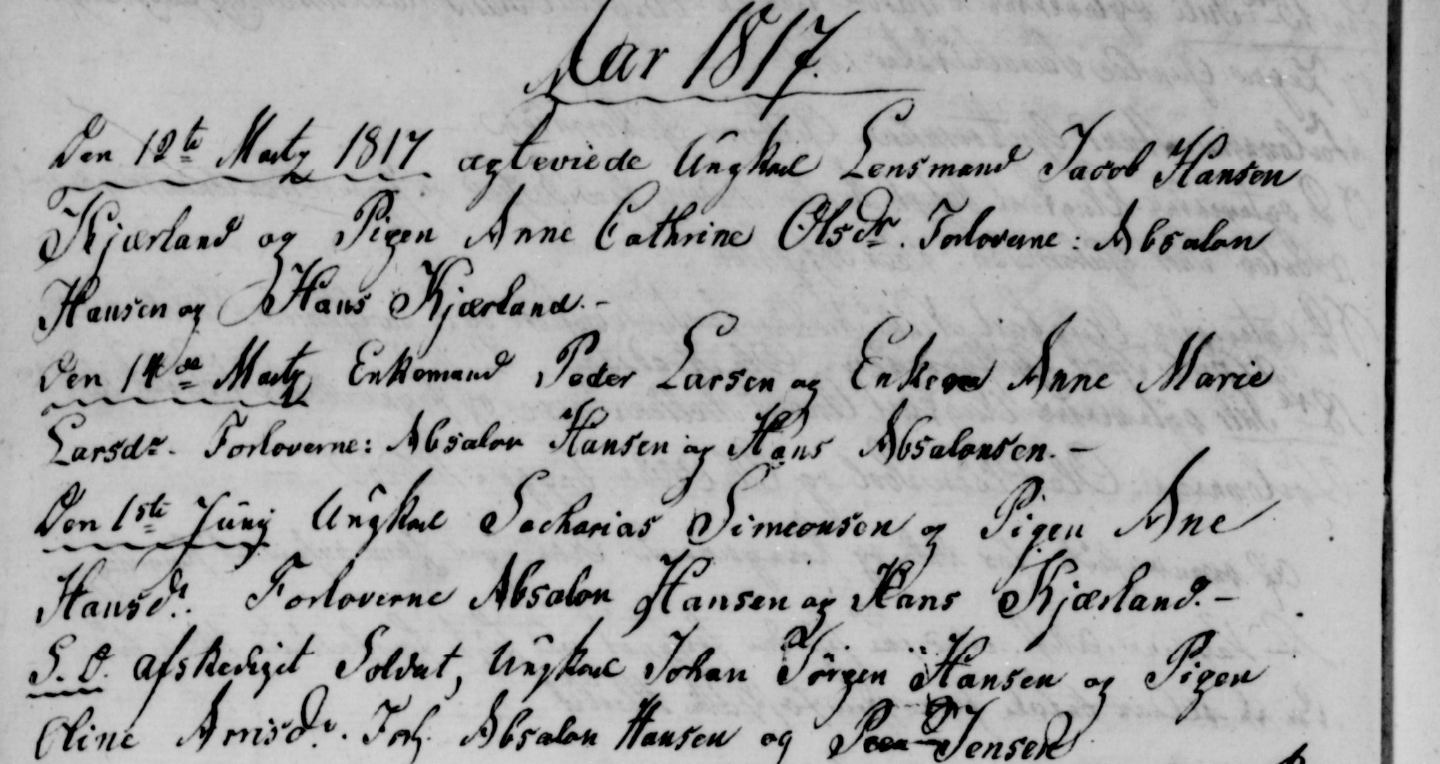 Aar 1817.
Den 12te Marty 1817 egteviede Ungkarl Lensmand Jacob Hansen
Kjærland og Pigen Anne Cathrine Olsdr. Forloverne: Absalon
Hansen og Hans Kjærland.-
Den 14de Marty Enkemand Peder Larsen og Enken Anne Marie
Larsdr. Forloverne: Absalon Hansen og Hans Absalonsen.-
Den 1ste Juny Ungkarl Sacharias Simeonsen og Pigen Ane
Hansd. Forloverne Absalon Hansen og Hans Kjærland.-
S.D. Afskediget Soldat, Ungkarl Johan Jørgen Hansen og Pigen
Oline Arnsdr. Forl. Absalon Hansen og Jensen